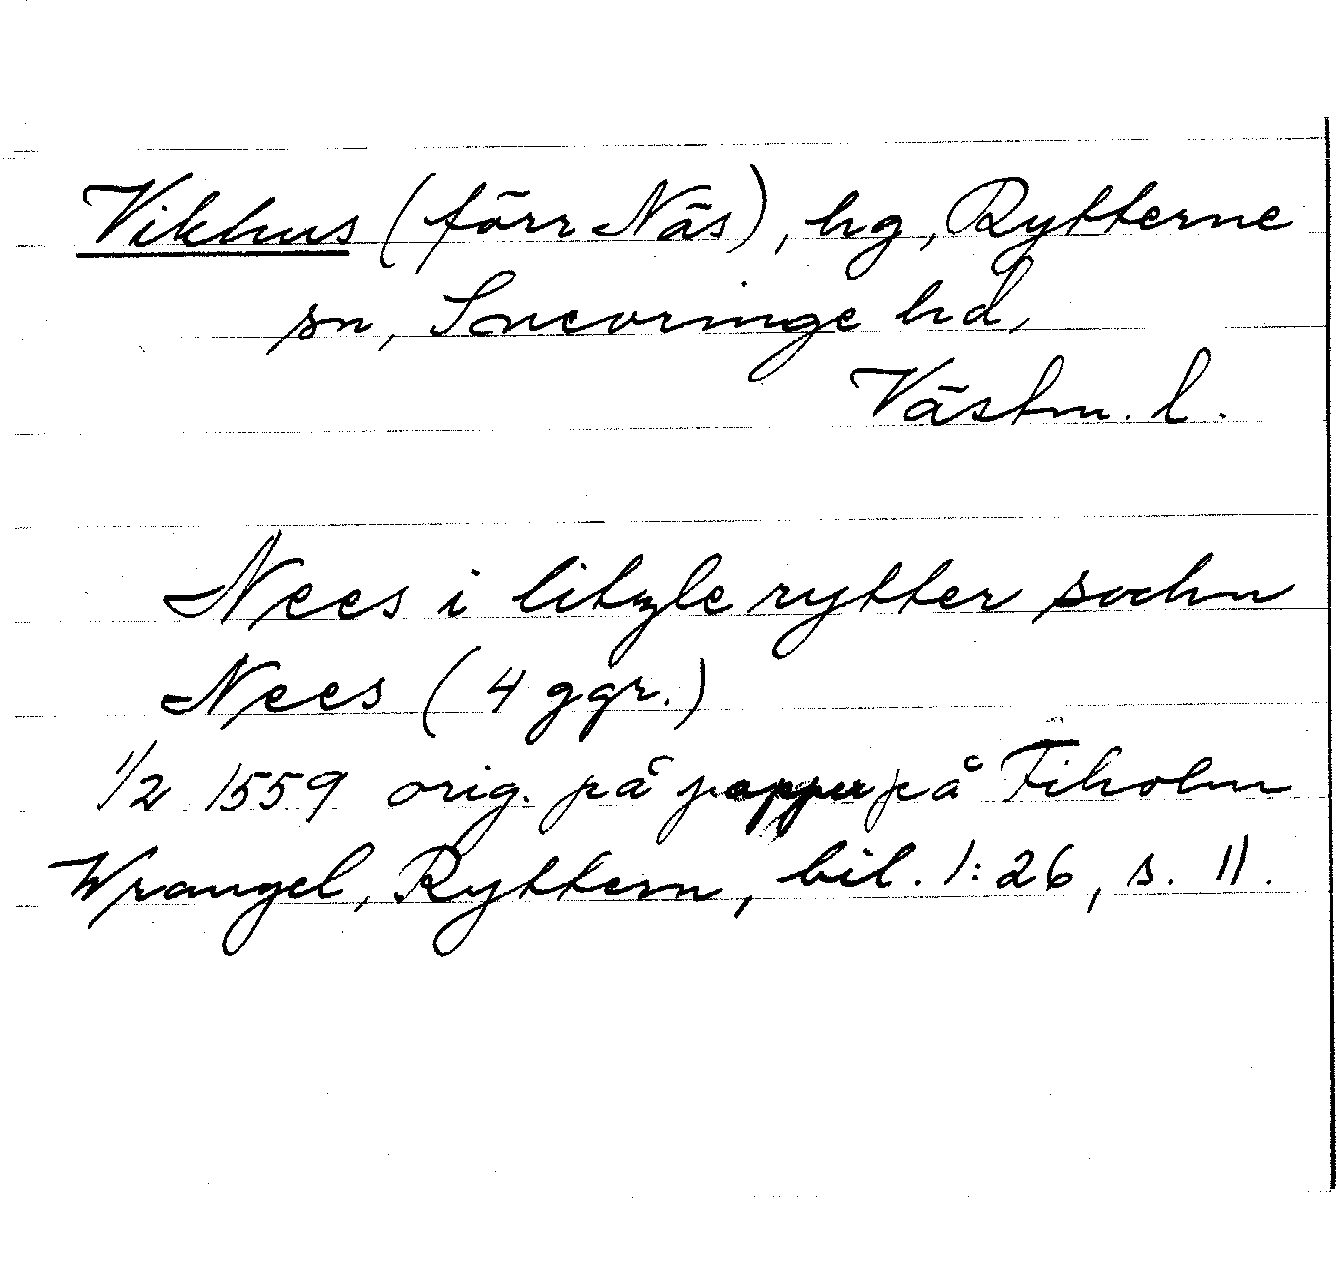 Vikhus (förr Näs), hg, Rytterne
sn, Snevringe hd,
Västm. l.
Nees i litzle rytter sochn
Nees (4 ggr.)
1/2 1559 orig. på papper på Fiholm
Wrangel, Ryttern, bil. 1:26, s. 11.